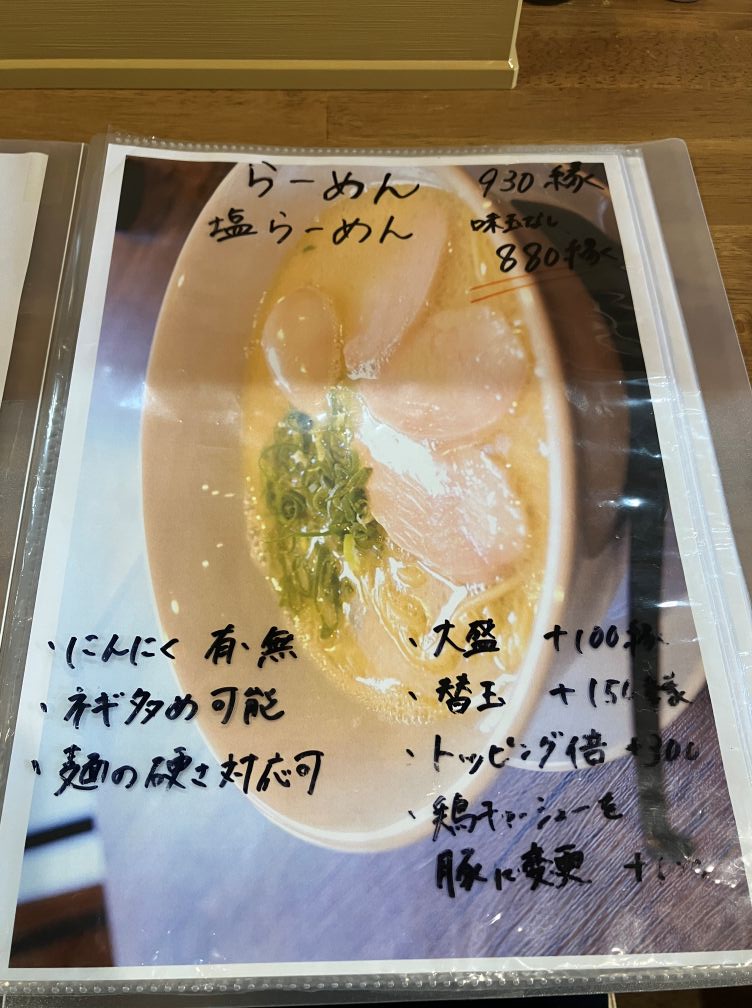 らーめん 930縁
塩らーめん 味玉なし
880縁
・にんにく 有・無
・ネギ多め可能
・麺の硬さ対応可
・大盛 +100縁
・替玉 +150縁
・トッピング倍 +300
・鶏チャーシューを
豚に変更 +